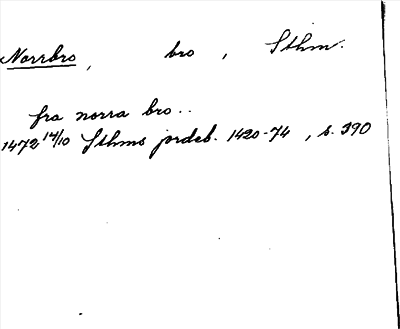 Norrbro, bro, Sthm.
fra norra bro..
1472 17/10 Sthms jordeb. 1420-74, s. 390